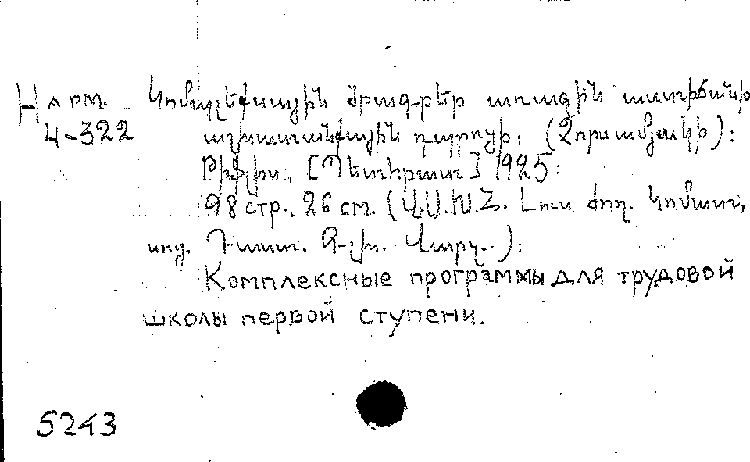 Н арм. Կոմպլեքսային ծրագրեր առաջին աստիճանի
4-322 աշխատանքային դպրոցի: (Չորսամյակի):
Թիֆլիս, [Պետհրատ] 1925.
98 стр. 26 см. (Վ.Ս.Խ.Հ. Լուս ժող. Կոմատ,
սոց. Դաստ. Գլխ. Վարչ.):
Комплексные программы для трудовой
школы первой ступени.
5243